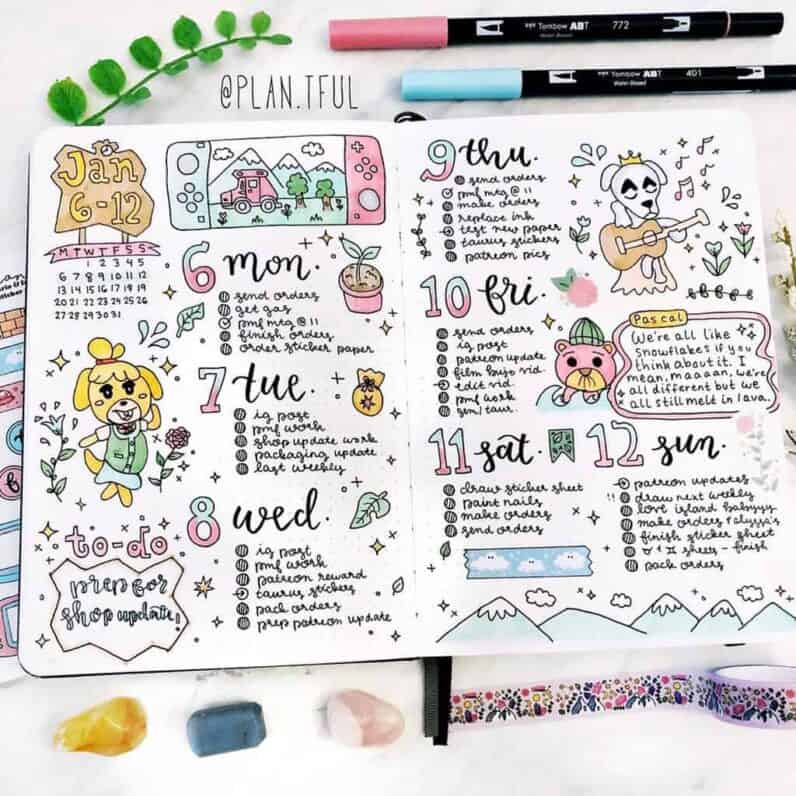 @PLAN.TFUL
Tombow ABT
Water-Based
772
Tombow ABT
Water-Based
401
Jan
6-12
M T W T F S S
1 2 3 4 5
6 7 8 9 10 11 12
13 14 15 16 17 18 19
20 21 22 23 24 25 26
27 28 29 30 31
6 mon.
send orders
get gas
pmf mtg @ 11
finish orders
order sticker paper
7 tue.
ig post
pmf work
shop update work
packaging update
last weekly
8 wed.
ig post
pmf work
patreon reward
taurus stickers
pack orders
prep patreon update
to-do
prep for
shop update!
9 thu.
send orders
pmf mtg @ 11
make orders
replace ink
test new paper
taurus stickers
patreon pics
10 fri.
send orders
ig post
patreon update
film kujo vid.
edit vid.
pmf work
gem/taur.
Pascal
We're all like
snowflakes if you
think about it. I
mean, maaaan, we're
all different but we
all still melt in lava.
11 sat.
draw sticker sheet
paint nails
make orders
send orders
12 sun.
patreon updates
!! draw next weekly
love island babyyy
make orders / alyssa's
finish sticker sheet
♉ & ♊ sheets - finish
pack orders